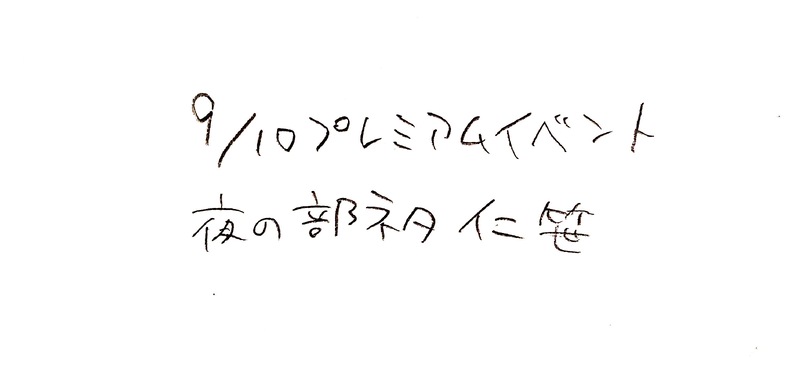 9/10プレミアムイベント
夜の部ネタ 仁笹